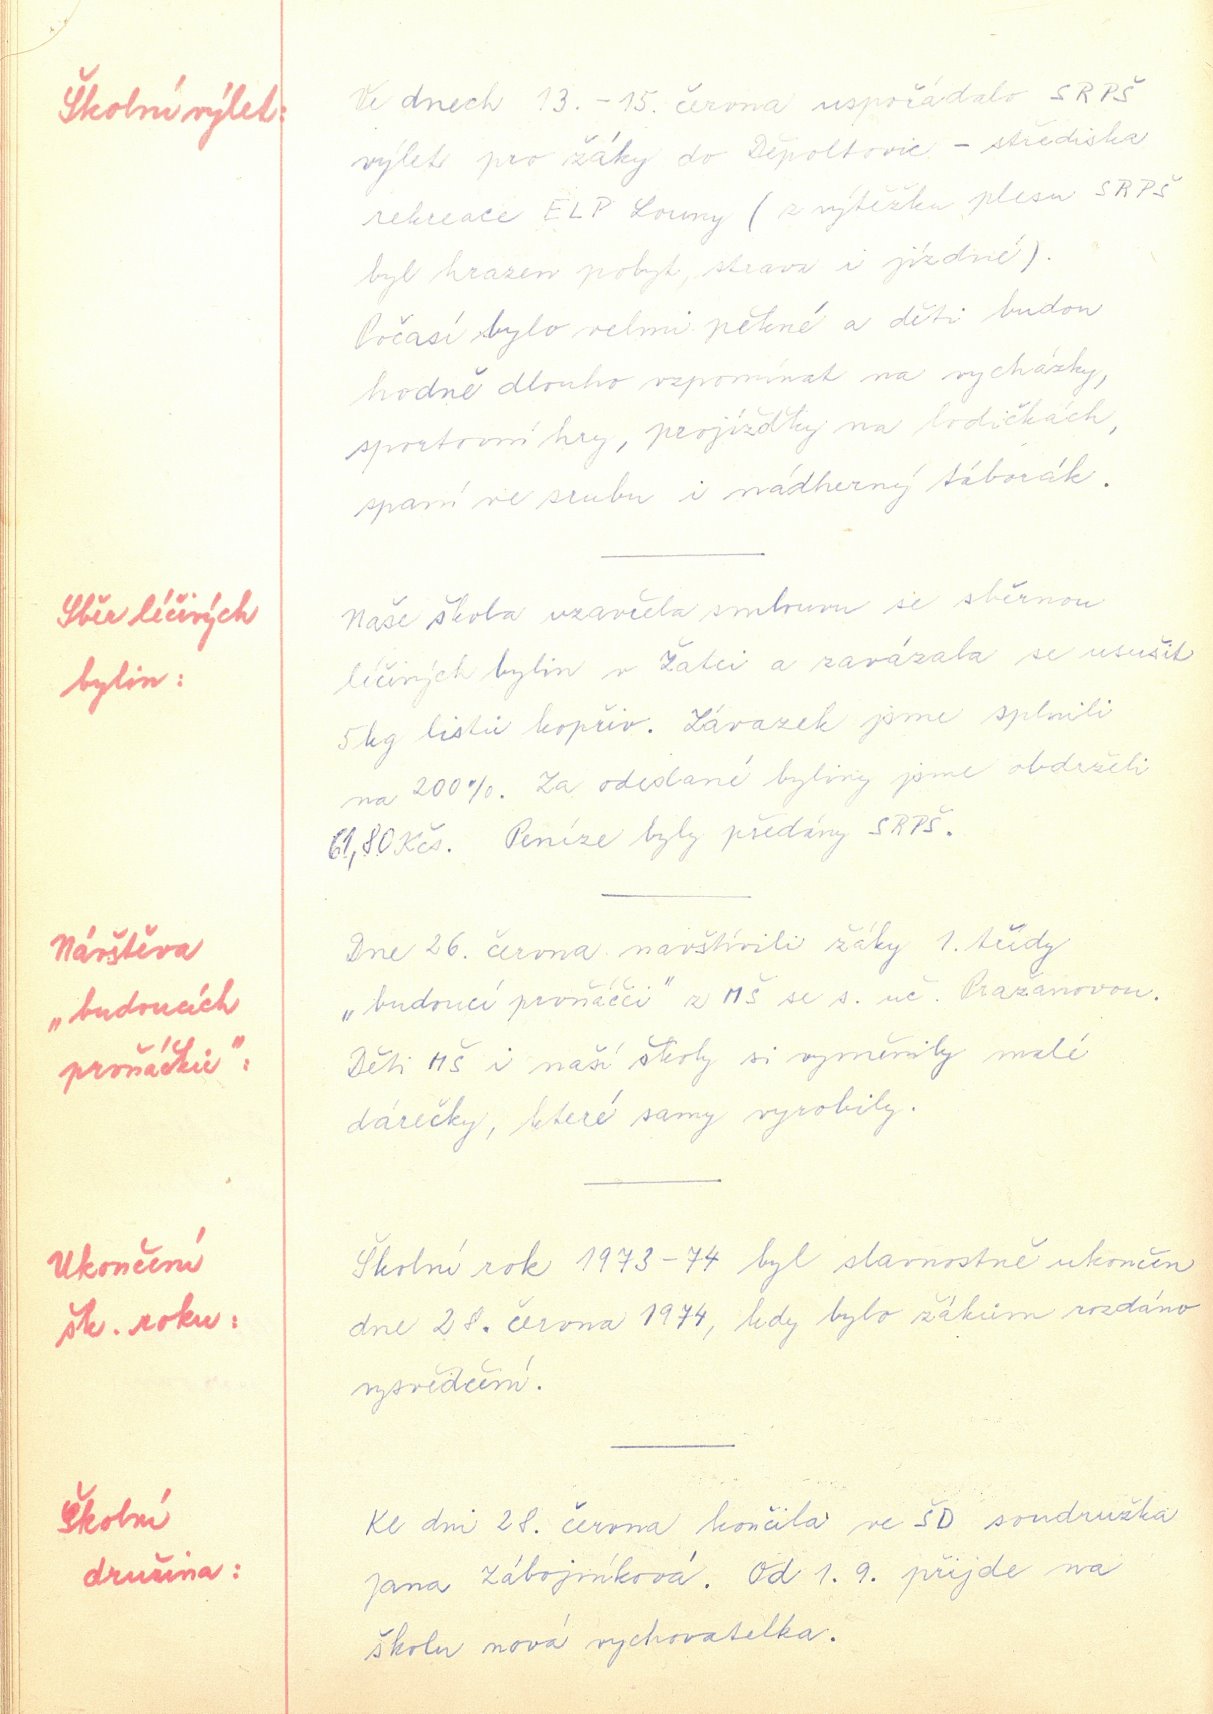 Školní výlet:
Ve dnech 13. – 15. června uspořádalo SRPŠ
výlet pro žáky do Děpoltovic – střediska
rekreace ELP Louny ( z výtěžku plesu SRPŠ
byl hrazen pobyt, strava i jízdné).
Počasí bylo velmi pěkné a děti budou
hodně dlouho vzpomínat na vycházky,
sportovní hry, projížďky na lodičkách,
spaní ve srubu i nádherný táborák.
Sběr léčivých
bylin:
Naše škola uzavřela smlouvu se sběrnou
léčivých bylin v Žatci a zavázala se usušit
5kg listů kopřiv. Závazek jsme splnili
na 200%. Za odeslané byliny jsme obdrželi
61,80 Kčs. Peníze byly předány SRPŠ.
Návštěva
„budoucích
prvňáčků":
Dne 26. června navštívili žáky 1. třídy
„budoucí prvňáčci" z MŠ se s. uč. Pražanovou.
Děti MŠ i naší školy si vyměnily malé
dárečky, které samy vyrobily.
Ukončení
šk. roku:
Školní rok 1973–74 byl slavnostně ukončen
dne 28. června 1974, kdy bylo žákům rozdáno
vysvědčení.
Školní
družina:
Ke dni 28. června končila ve ŠD soudružka
Jana Zábojníková. Od 1. 9. přijde na
školu nová vychovatelka.